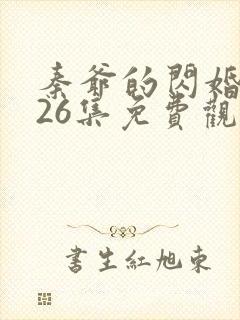 秦爺的閃婚
26集免費觀
書生紅旭東